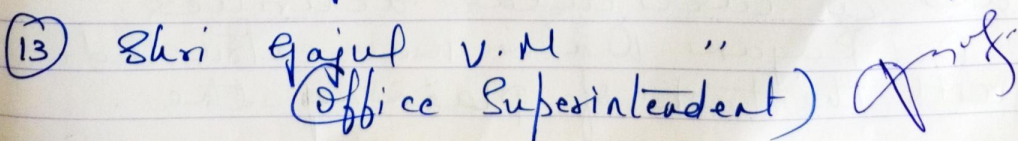 (13) Shri Gajul V.M "
(Office Superintendent)